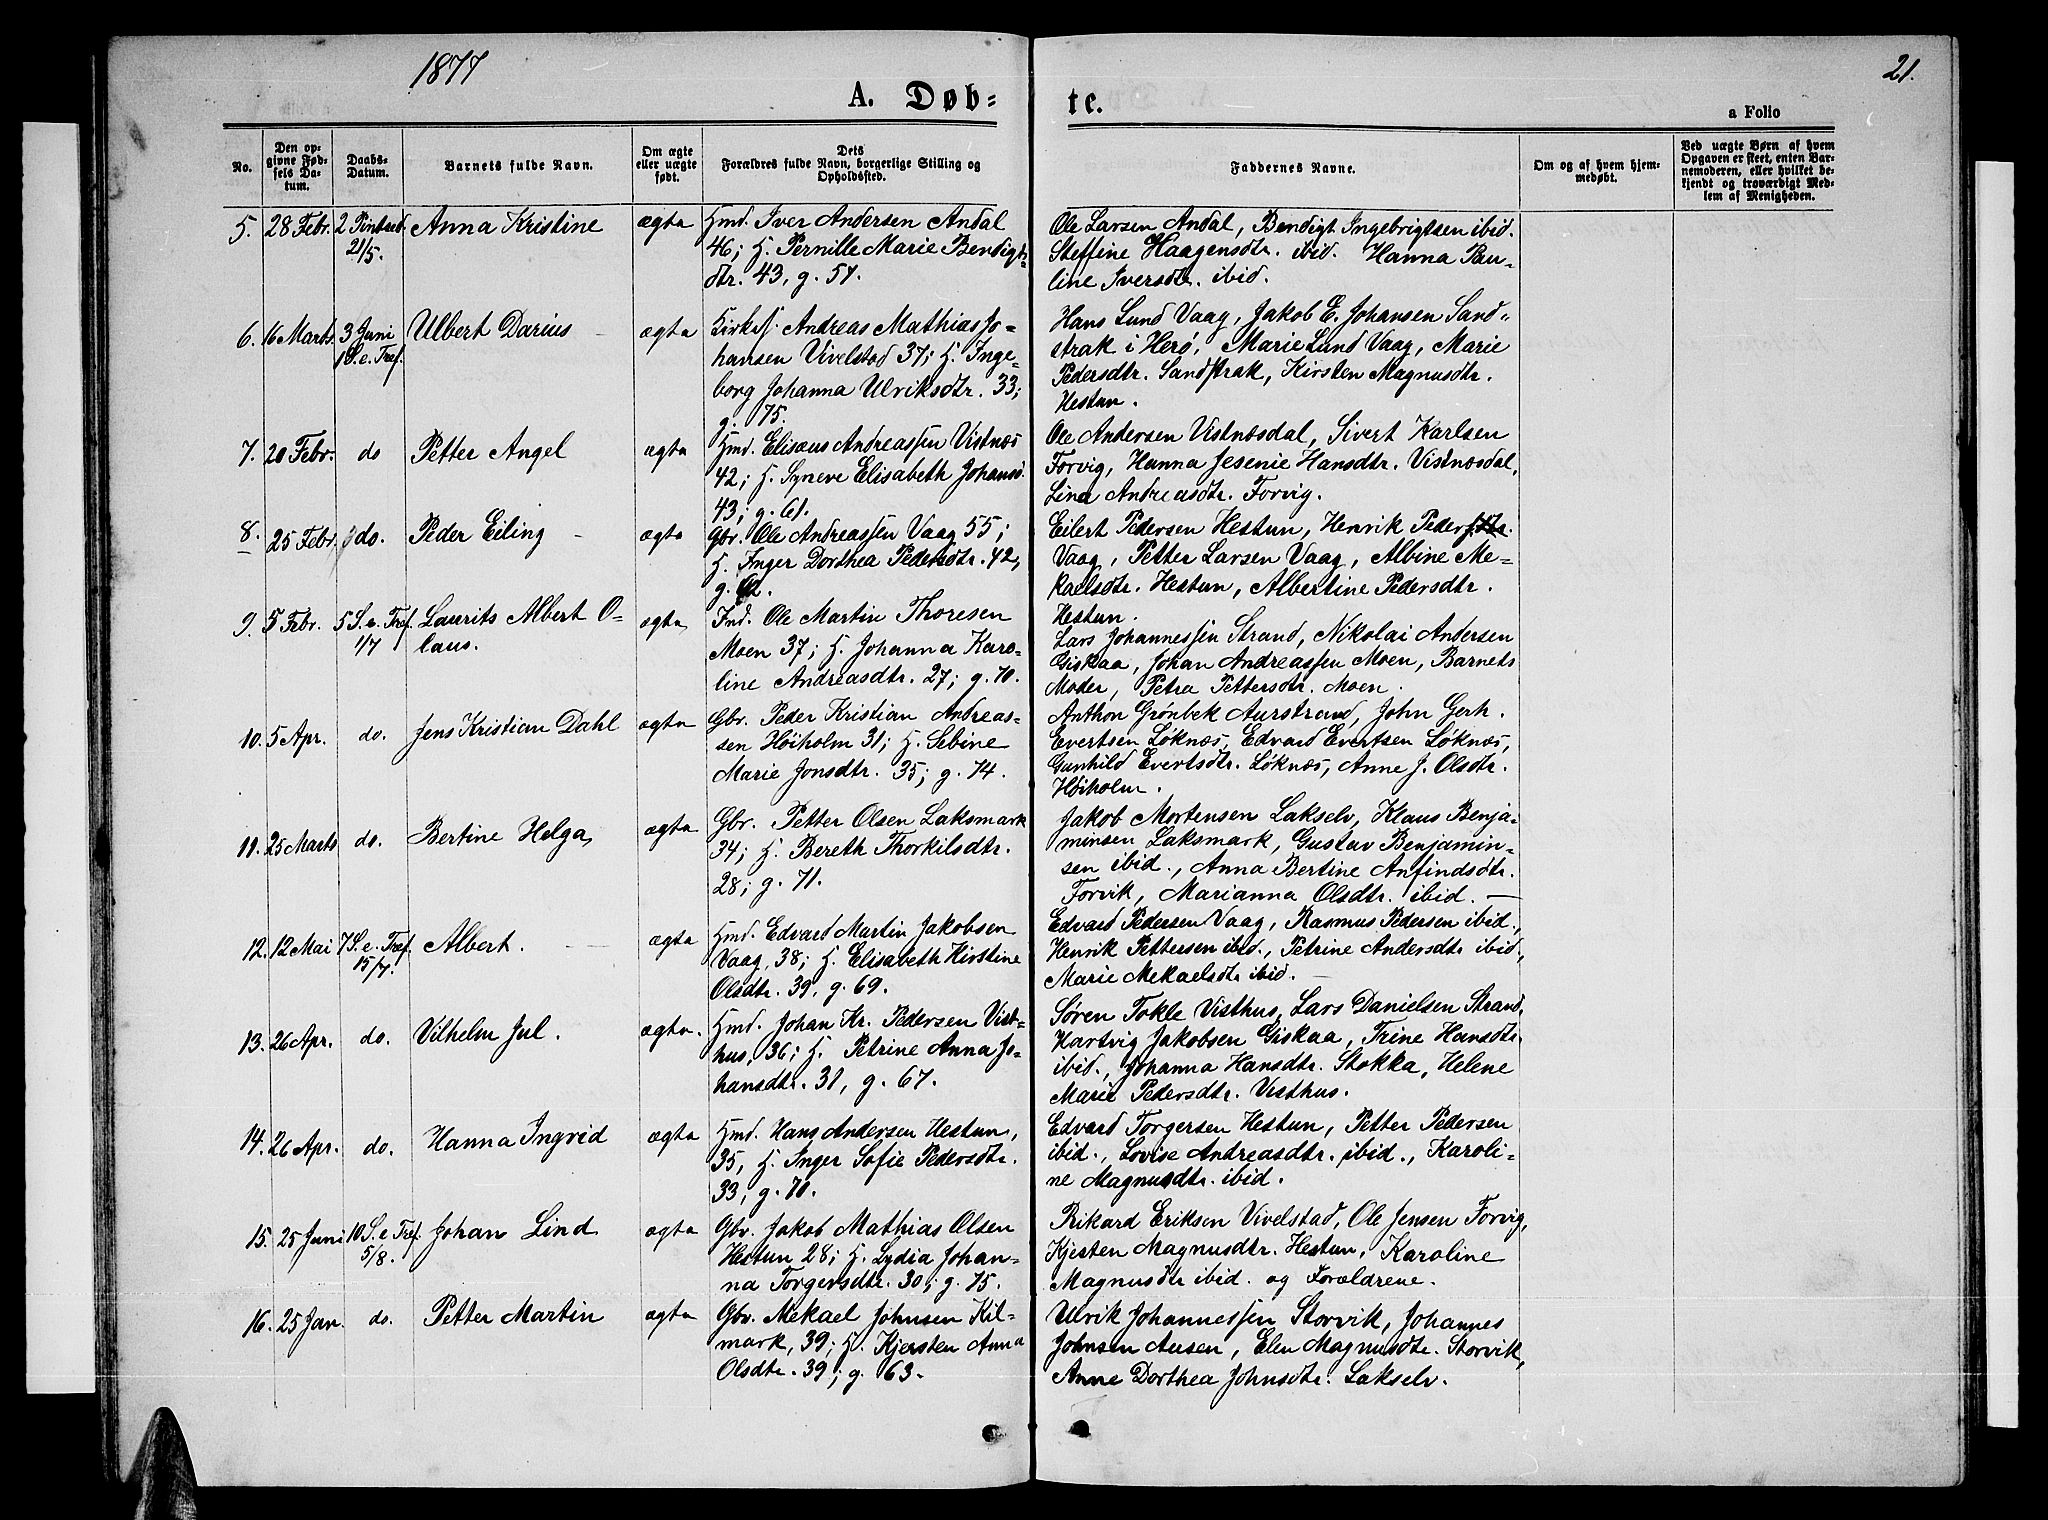 1877
21.
A. Døb-
te.
a Folio
No.
Den op-
givne Fød-
sels Da-
tum.
Daabs-
Datum.
Barnets fulde Navn.
Om ægte
eller uægte
født.
Dets
Forældres fulde Navn, borgerlige Stilling og
Opholdssted.
Faddernes Navne.
Om og af hvem hjem-
medøbt.
Ved uægte Børn af hvem
Opgaven er skeet, enten Bar-
nemoderen, eller hvilket be-
kjendt og troværdigt Med-
lem af Menigheden.
5. 28 Febr. 2 Pintsed. Anna Kristine ægta Hmd. Iver Andersen Andal
21/5. 46; H. Pernille Marie Bendigts
dtr. 43, g. 57.
Ole Larsen Andal, Bendigt Ingebrigtsen ibid.
Steffine Haagensdtr. ibid. Hanna Pau-
line Iversdtr. ibid.
6. 16 Marts. 3 Juni Ulbert Darius ægta Kirkes. Andreas Mathias Jo-
1 S. e. Tref. hansen Vivelstad 37; H. Inge-
borg Johanna Ulriksdtr. 33;
g. 75.
Hans Lund Vaag, Jakob E. Johansen Sand-
strak i Herø, Marie Lund Vaag, Marie
Pedersdtr. Sandstrak, Kirsten Magnusdtr.
Hestun.
7. 20 Febr. do Petter Angel ægta Hmd. Elisæus Andreassen Vistnæs
42; H. Syneve Elisabeth Johansd.
43; g. 61.
Ole Andersen Vistnæsdal, Sivert Karlsen
Forvig, Hanna Jesenie Hansdtr. Vistnæsdal,
Lina Andreasdtr. Forvig.
8. 25 Febr. do. Peder Eiling ægta Gbr. Ole Andreassen Vaag 55;
H. Inger Dorthea Pedersdtr. 42,
g. 62.
Eilert Pedersen Hestun, Henrik Peders
Vaag, Petter Larsen Vaag, Albine Me-
kaelsdtr. Hestun, Albertine Pedersdtr.
Hestun.
9. 5 Febr. 5 S. e. Tref. Laurits Albert O- ægta Ind. Ole Martin Thoresen
1/7 laus. Moen 37; H. Johanna Karo-
line Andreasdtr. 27; g. 70.
Lars Johannessen Strand, Nikolai Andersen
Giskaa, Johan Andreassen Moen, Barnets
Moder, Petra Pettersdtr. Moen.
10. 5 Apr. do. Jens Kristian Dahl ægta Gbr. Peder Kristian Andreas-
sen Høiholm 31; H. Sebine
Marie Jonsdtr. 35; g. 74.
Anthon Grønbek Aurstrand, John Gerh.
Evertsen Løknæs, Edvard Evertsen Løknæs,
Gunhild Evertsdtr. Løknæs, Anne J. Olsdtr.
Høiholm.
11. 25 Marts do. Bertine Helga ægta Gbr. Petter Olsen Laksmark
34; H. Bereth Thorkilsdtr.
28; g. 71.
Jakob Mortensen Lakselv, Klaus Benja-
minsen Laksmark, Gustav Benjamin-
sen ibid., Anna Bertine Anfindsdtr.
Forvik, Marianna Olsdtr. ibid.
12. 12 Mai 7 S. e. Tref. Albert. ægta Hmd. Edvard Martin Jakobsen
15/7. Vaag, 38; H. Elisabeth Kirstine
Olsdtr. 39, g. 69.
Edvard Pedersen Vaag, Rasmus Pedersen ibid.,
Henrik Pettersen ibid., Petrine Andersdtr ibid.,
Marie Mekaelsdtr ibid.
13. 26 Apr. do. Vilhelm Jul. ægta. Hmd. Johan Kr. Pedersen Vist-
hus, 36; H. Petrine Anna Jo-
hansdtr. 31, g. 67.
Søren Tokle Visthus, Lars Danielsen Strand,
Hartvig Jakobsen Giskaa, Trine Hansdtr.
ibid., Johanna Hansdtr. Stokka, Helene
Marie Pedersdtr. Visthus.
14. 26 Apr. do. Hanna Ingvid ægta Hmd. Hans Andersen Hestun,
35, H. Inger Sofie Pedersdtr.
33, g. 70.
Edvard Torgersen Hestun, Petter Pedersen
ibid., Lovise Andreasdtr. ibid., Karoli-
ne Magnusdtr. ibid.
15. 25 Juni 10 S. e Tref. Johan Lind ægta Gbr. Jakob Mathias Olsen
5/8. Hestun 28; H. Lydia Johan-
na Torgersdtr. 30; g. 75.
Rikard Eriksen Vivelstad, Ole Jensen Forvig,
Kjesten Magnusdtr. Hestun, Karoline
Magnusdtr ibid. og Forældrene.
16. 25 Jan. do. Petter Martin ægta Gbr. Mekael Johnsen Kil-
mark, 39; H. Kjersten Anna
Olsdtr. 39; g. 63.
Ulrik Johannessen Storvik, Johannes
Johnsen Ausen, Elen Magnusdtr. Storvik,
Anne Dorthea Johnsdtr. Lakselv.